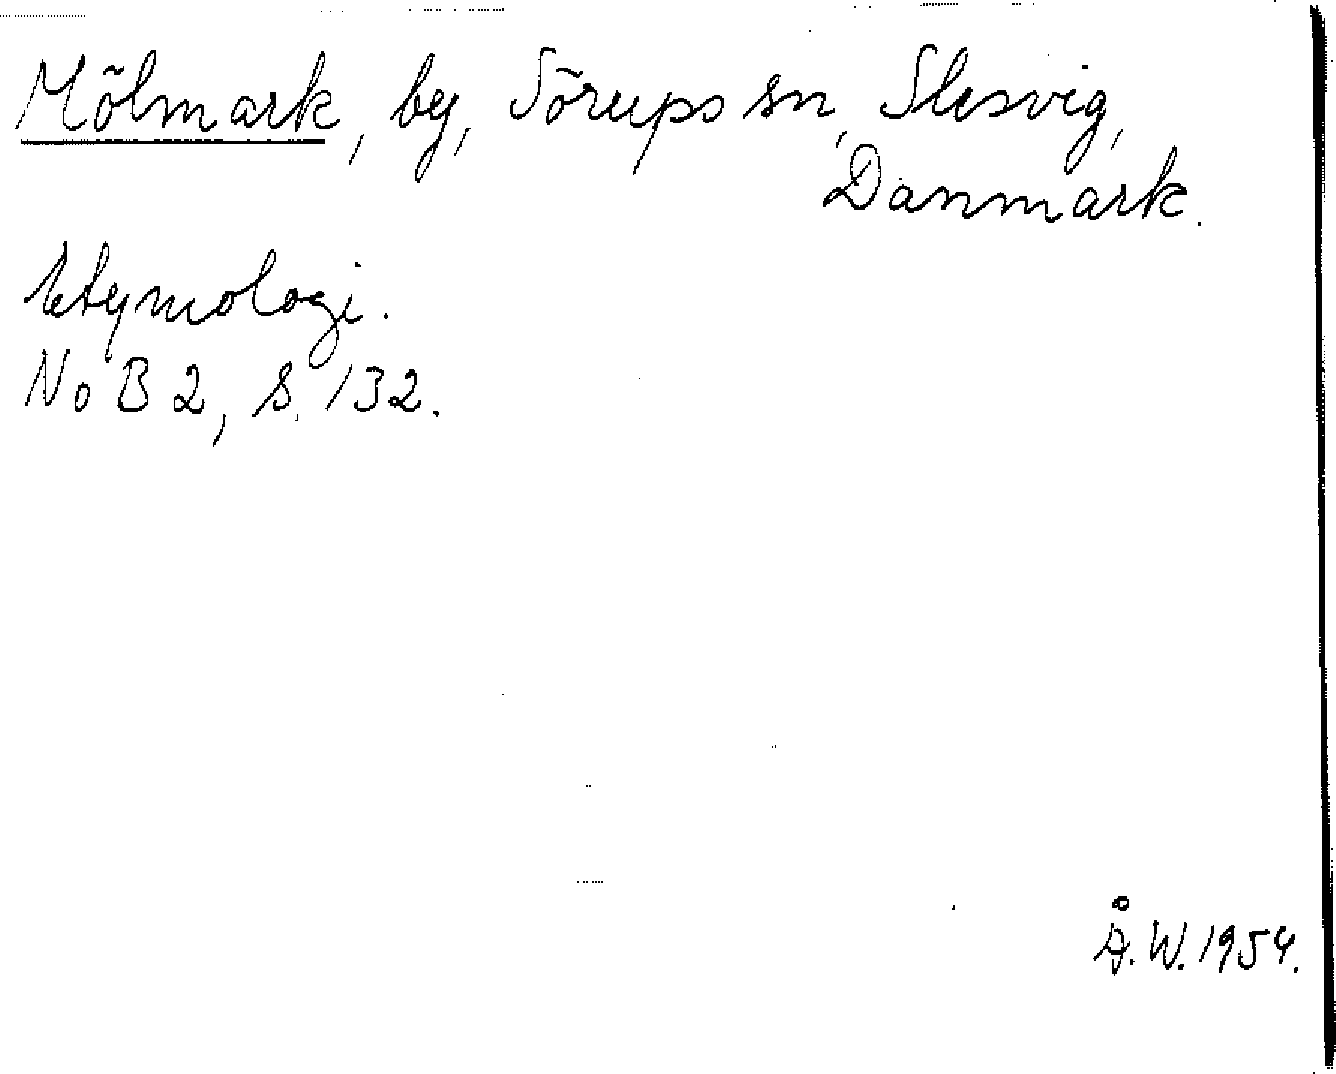 Mölmark, by, Sörups sn, Slesvig,
Danmark.
Etymologi.
NoB 2, S. 132.
Å.W. 1954.